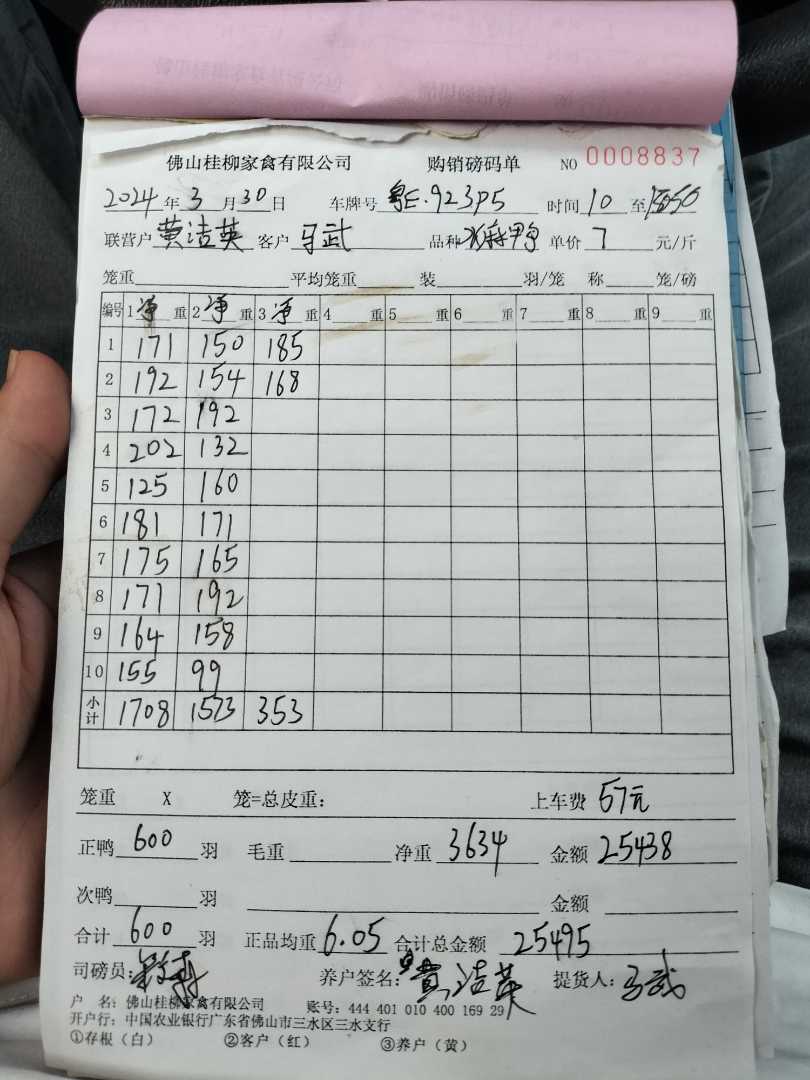 佛山桂柳家禽有限公司 购销磅码单 NO 0008837
2024年3月30日 车牌号 粤E·923P5 时间10至1550
联营户黄洁英 客户马武 品种水麻鸭 单价7元/斤
笼重 平均笼重 装 羽/笼 称 笼/磅
编号 1净重 2净重 3净重 4重 5重 6重 7重 8重 9重
1 171 150 185
2 192 154 168
3 172 192
4 202 132
5 125 160
6 181 171
7 175 165
8 171 192
9 164 158
10 155 99
小计 1708 1573 353
笼重 X 笼=总皮重: 上车费 57元
正鸭600羽 毛重 净重3634 金额25438
次鸭 羽 金额
合计600羽 正品均重6.05 合计总金额25495
司磅员: 养户签名:黄洁英 提货人:马武
户 名:佛山桂柳家禽有限公司 账号:444 401 010 400 169 29
开户行:中国农业银行广东省佛山市三水区三水支行
①存根(白) ②客户(红) ③养户(黄)